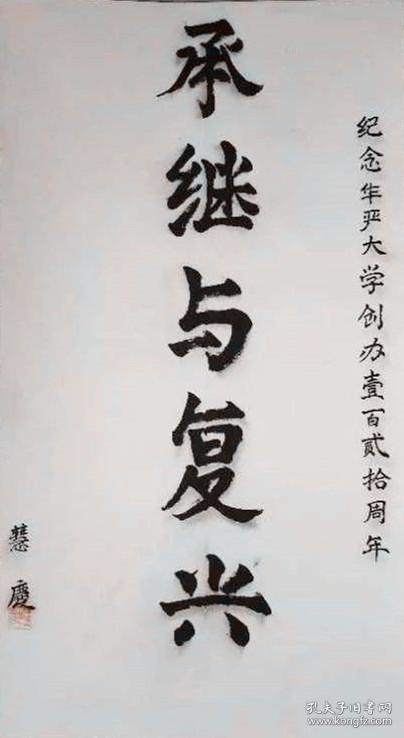 纪念华严大学创办壹百贰拾周年
承继与复兴
慧慶
孔夫子旧书网